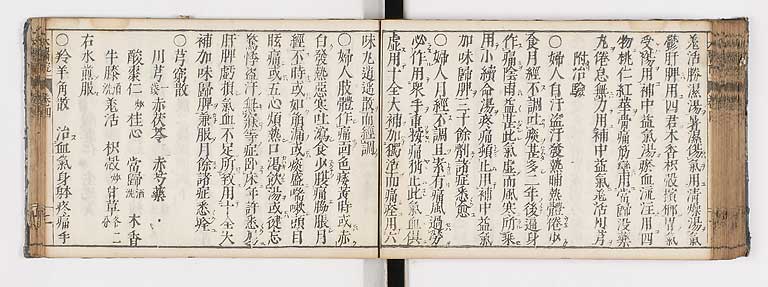 羗活勝濕湯暑濕傷氣用清燥湯氣
鬱肝脾用四君木香枳殼檳榔胃氣
受傷用補中益氣湯瘀血流注用四
物桃仁紅華骨痛筋攣用當歸沒藥
九倦怠無力用補中益氣羗活川芎
附治驗
○婦人自汗盗汗發熱晡熱體倦少
食月經不調吐痰甚多二年後遍身
作痛陰雨益甚此氣虚而風寒所乗
用小續命湯疼痛頓止用補中益氣
加味歸脾三十餘劑諸症悉愈
○婦人月經不調且素有痛風過勞
必作用衆手重按痛稍止此氣血倶
虚用十全大補加獨活而痛痊用六
味丸逍遙散而經調
○婦人肢體作痛面色痿黄時或赤
白發熱惡寒吐瀉食少腹痛脇脹月
經不時或如崩漏或痰盛喘嗽頭目
眩痛或五心煩熱口渇飲湯或健忘
驚悸盗汗無寐等症卧床年許悉用
肝脾虧損氣血不足所致用十全大
補加味歸脾兼服月餘諸症悉痊
○芎藭散
川芎一 赤茯苓 赤芍藥
酸棗仁炒 桂心 當歸酒洗 木香
牛膝酒洗 羗活 枳殻炒 甘草各二分
右水煎服
○羚羊角散 治血氣身躰疼痛手